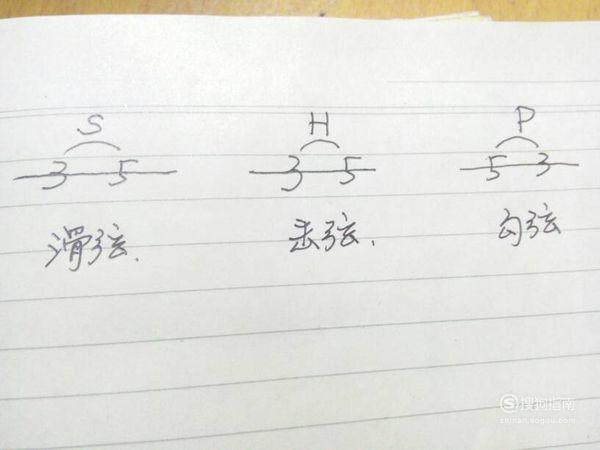 S H P
3 5 3 5 5 3
滑弦. 击弦. 勾弦
搜狗指南
zhinan.sogou.com